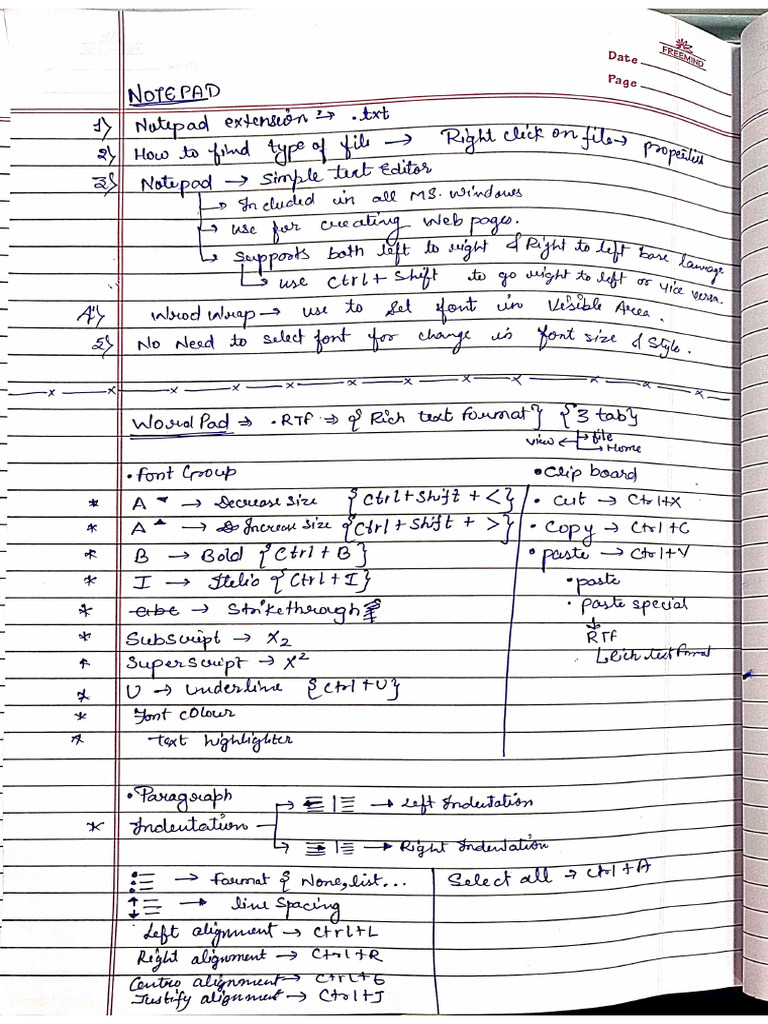 FREEMIND
Date
Page
NOTEPAD
1) Notepad extension :→ .txt
2) How to find type of file → Right click on file → properties
3) Notepad → Simple text Editor
→ Included in all MS. Windows
→ use for creating Web pages.
→ supports both left to right & Right to left base lanuage
→ use Ctrl + Shift to go right to left or vice versa.
4) Wrod Wrap → use to Set font in Visible Area.
5) No Need to select font for change in font size & Style.
WordPad ⇒ .RTF ⇒ {Rich text format} {3 tab}
view ← → file
→ Home
• Font Group
* A ▾ → Decrease size {Ctrl + Shift + <}
* A ▴ → Increase size {Ctrl + Shift + >}
* B → Bold {Ctrl + B}
* I → Itelic {Ctrl + I}
* abc → Strikethrough
* Subscript → X₂
* Superscript → X²
* U → underline {Ctrl + U}
* Font colour
* text highlighter
• Clip board
• Cut → Ctrl+X
• Copy → Ctrl+C
• paste → Ctrl+V
• paste
• paste special
↓
RTF
Rich text format
• Paragraph
* Indentation
→ left Indentation
→ Right Indentation
→ Format { None, list...
→ line Spacing
Left alignment → Ctrl+L
Right alignment → Ctrl+R
Centre alignment → Ctrl+E
Justify alignment → Ctrl+J
Select all → Ctrl+A